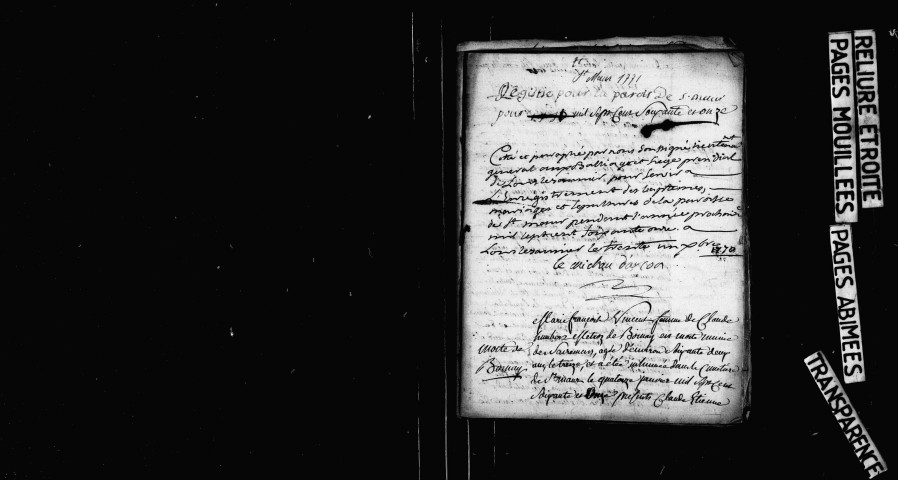 St Maur 1771
Registre pour la parois de s. maur
pour mil sept Cent Soixante et onze
Cotté et paraphé par nous Soussigné Lieutenant
general au Bailliage et siege presidial
de Lons le saunier, pour servir a
L'Enregistrement des baptemes,
mariages et sepultures de la paroisse
de st maur pendant l'année prochaine
mil sept cent soixante onze. a
Lons le saunier le trente un Xbre 1770
Marie françoise Vincent femme de Claude
humbert de Bornay est morte munie
des Sacremens, agée d'environ soixante deux
ans, le treize, et a été inhumée dans le Cimetiere
de St maur le quatorze janvier mil sept cent
soixante et onze presents Claude Etienne
morte de
Bornay
RELIURE ETROITE
PAGES MOUILLEES
PAGES ABIMEES
TRANSPARENCE